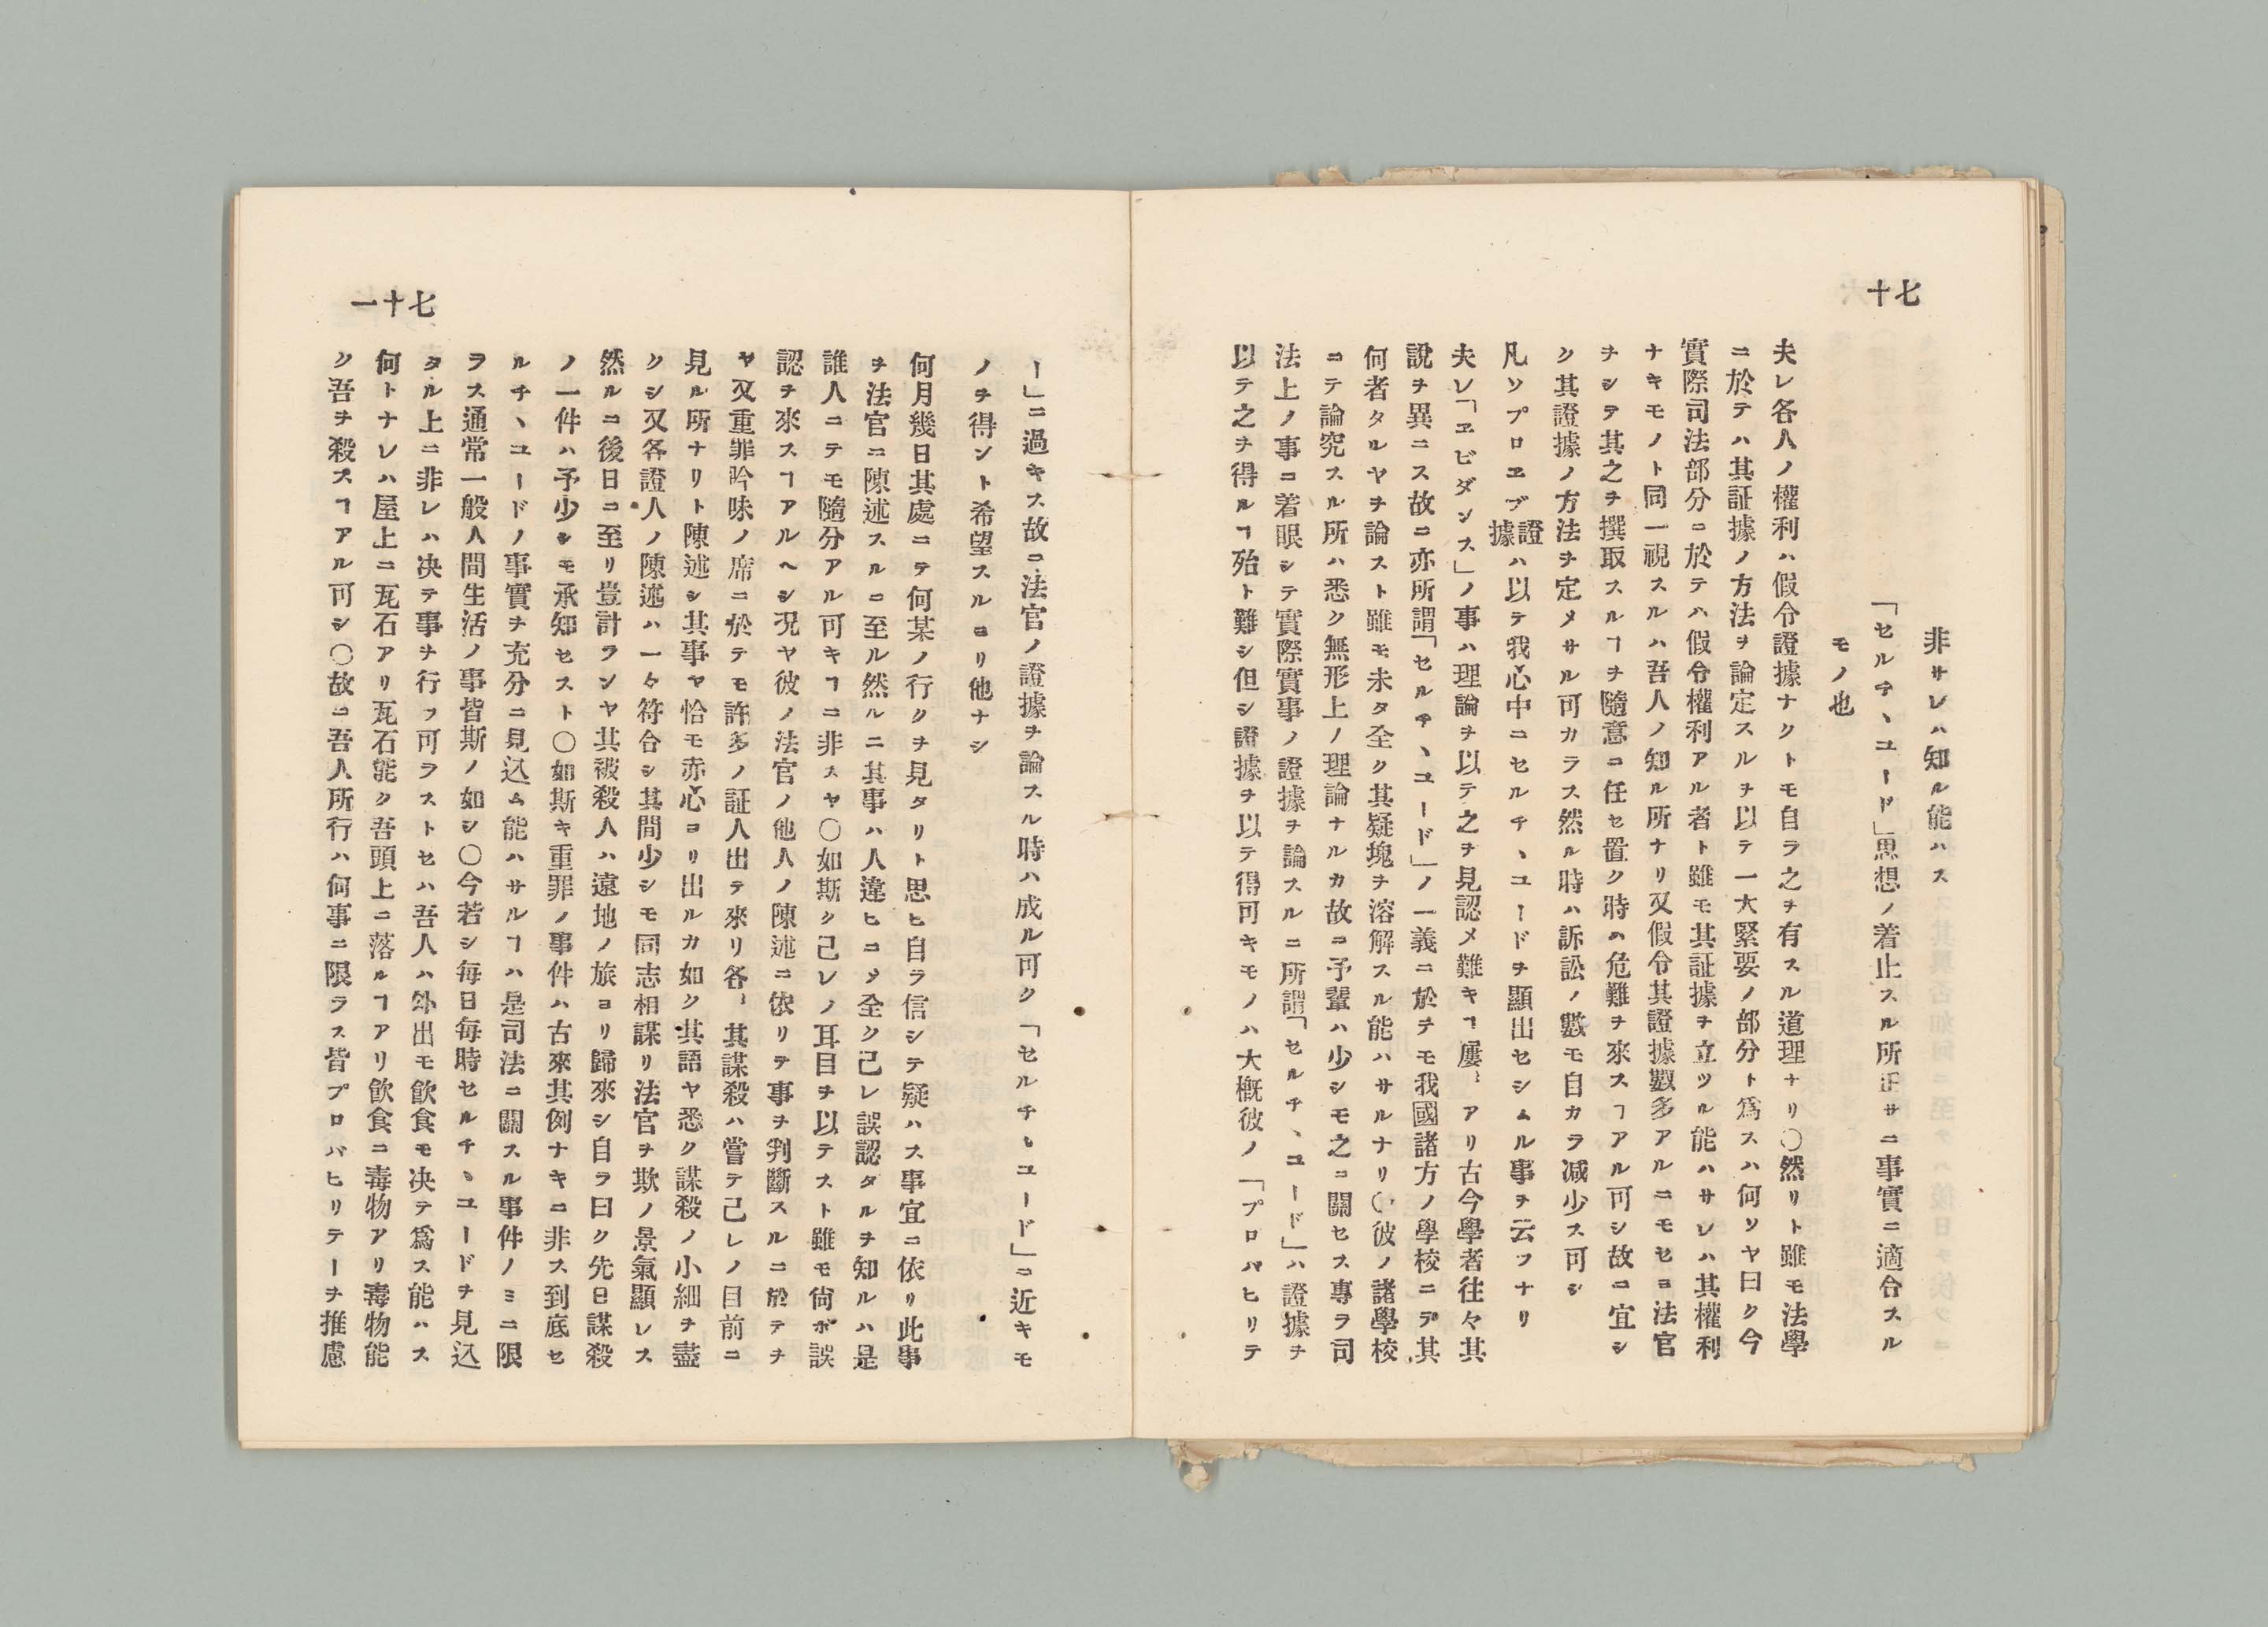 七十
非サレハ知ル能ハス
「セルチ、ユード」思想ノ着止スル所正サニ事實ニ適合スル
モノ也
夫レ各人ノ權利ハ假令證據ナクトモ自ラ之ヲ有スル道理ナリ〇然リト雖モ法學
ニ於テハ其証據ノ方法ヲ論定スルヲ以テ一大緊要ノ部分ト爲スハ何ソヤ曰ク今
實際司法部分ニ於テハ假令權利アル者ト雖モ其証據ヲ立ツル能ハサレハ其權利
ナキモノト同一視スルハ吾人ノ知ル所ナリ又假令其證據數多アルニモセヨ法官
ヲシテ其之ヲ撰取スルヿヲ隨意ニ任セ置ク時ハ危難ヲ來スヿアル可シ故ニ宜シ
ク其證據ノ方法ヲ定メサル可カラス然ル時ハ訴訟ノ數モ自カラ减少ス可シ
凡ソプロヱブ證據ハ以テ我心中ニセルチ、ユードヲ顯出セシムル事ヲ云フナリ
夫レ「ヱビダンス」ノ事ハ理論ヲ以テ之ヲ見認メ難キヿ屢〻アリ古今學者往々其
說ヲ異ニス故ニ亦所謂「セルチ、ユード」ノ一義ニ於テモ我國諸方ノ學校ニテ其
何者タルヤヲ論スト雖モ未タ全ク其疑塊ヲ溶解スル能ハサルナリ〇彼ノ諸學校
ニテ論究スル所ハ悉ク無形上ノ理論ナルカ故ニ予輩ハ少シモ之ニ關セス專ラ司
法上ノ事ニ着眼シテ實際實事ノ證據ヲ論スルニ所謂「セルチ、ユード」ハ證據ヲ
以テ之ヲ得ルヿ殆ト難シ但シ證據ヲ以テ得可キモノハ大概彼ノ「プロバヒリテ
七十一
ー」ニ過キス故ニ法官ノ證據ヲ論スル時ハ成ル可ク「セルチ、ユード」ニ近キモ
ノヲ得ント希望スルヨリ他ナシ
何月幾日其處ニテ何某ノ行クヲ見タリト思ヒ自ラ信シテ疑ハス事宜ニ依リ此事
ヲ法官ニ陳述スルニ至ル然ルニ其事ハ人違ヒニメ全ク己レ誤認タルヲ知ルハ是
誰人ニテモ隨分アル可キヿニ非スヤ〇如斯ク己レノ耳目ヲ以テスト雖モ尙ホ誤
認ヲ來スヿアルヘシ况ヤ彼ノ法官ノ他人ノ陳述ニ依リテ事ヲ判斷スルニ於テヲ
ヤ又重罪吟味ノ席ニ於テモ許多ノ証人出テ來リ各〻其謀殺ハ嘗テ己レノ目前ニ
見ル所ナリト陳述シ其事ヤ恰モ赤心ヨリ出ルカ如ク其語ヤ悉ク謀殺ノ小細ヲ盡
クシ又各證人ノ陳述ハ一々符合シ其間少シモ同志相謀リ法官ヲ欺ノ景氣顯レス
然ルニ後日ニ至リ豈計ランヤ其被殺人ハ遠地ノ旅ヨリ歸來シ自ラ曰ク先日謀殺
ノ一件ハ予少シモ承知セスト〇如斯キ重罪ノ事件ハ古來其例ナキニ非ス到底セ
ルチ、ユードノ事實ヲ充分ニ見込ム能ハサルヿハ是司法ニ關スル事件ノミニ限
ラス通常一般人間生活ノ事皆斯ノ如シ〇今若シ每日每時セルチ、ユードヲ見込
タル上ニ非レハ决テ事ヲ行フ可ラストセハ吾人ハ外出モ飮食モ决テ爲ス能ハス
何トナレハ屋上ニ瓦石アリ瓦石能ク吾頭上ニ落ルヿアリ飮食ニ毒物アリ毒物能
ク吾ヲ殺スヿアル可シ〇故ニ吾人所行ハ何事ニ限ラス皆プロバヒリテーヲ推慮